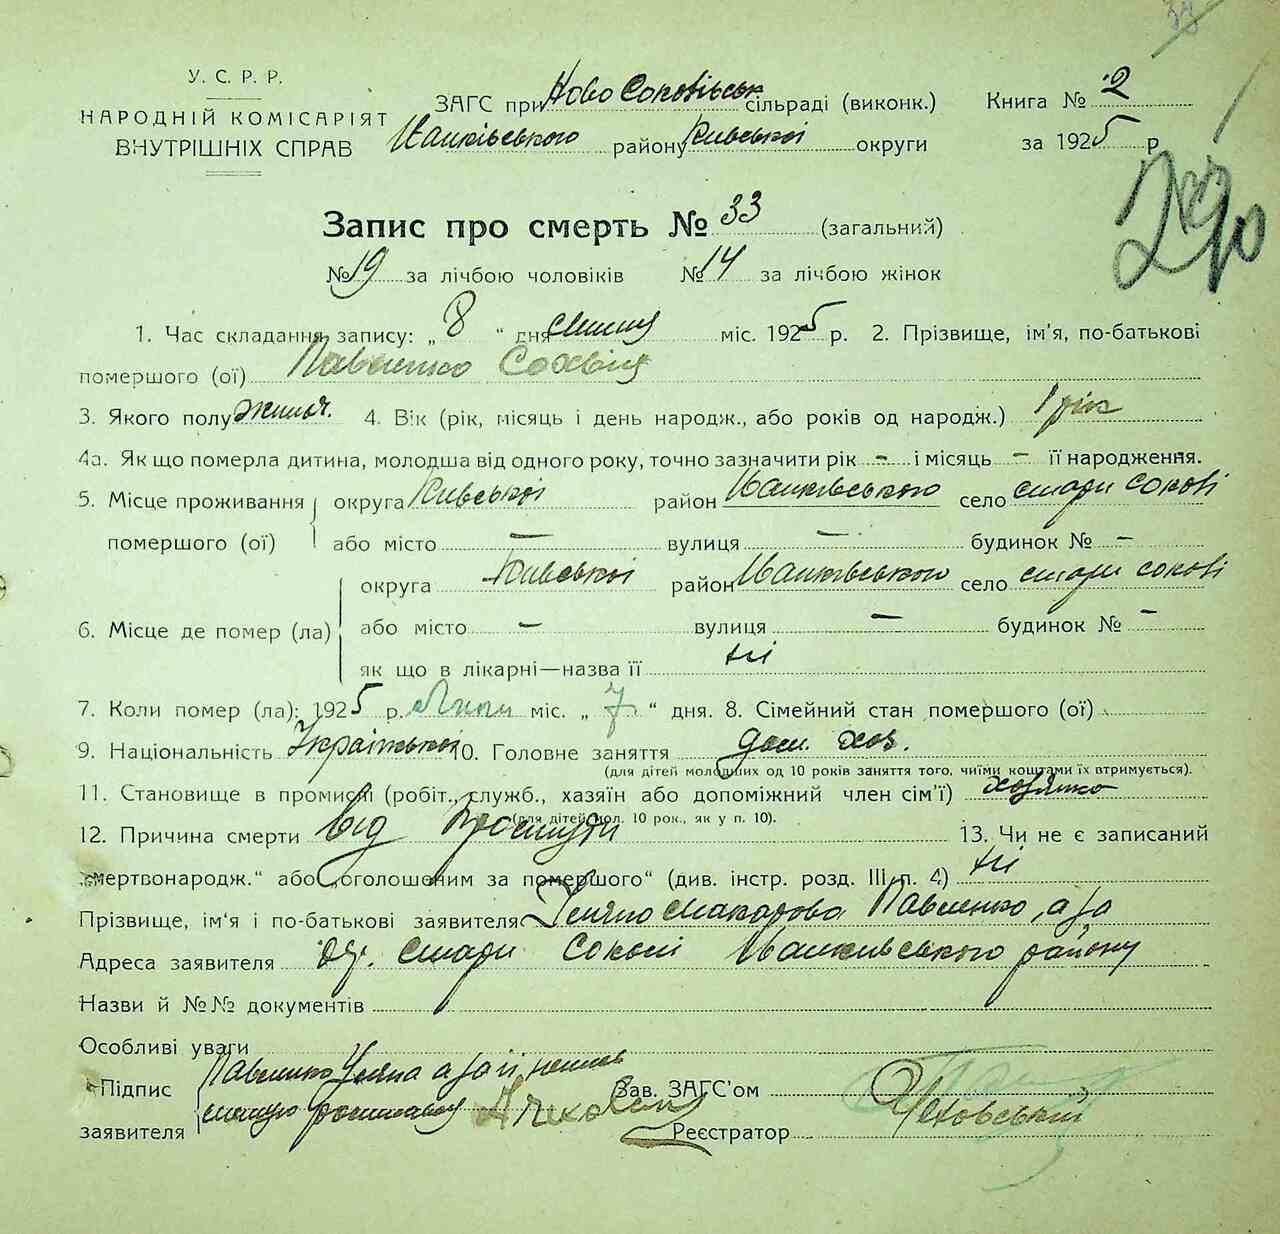 У. С. Р. Р.
НАРОДНІЙ КОМІСАРІЯТ
ВНУТРІШНІХ СПРАВ
ЗАГС при Ново Соковійськ сільраді (виконк.)
Іванківського району Київської округи
Книга № 2
за 1925 р
290
Запис про смерть № 33 (загальний)
№ 19 за лічбою чоловіків № 14 за лічбою жінок
1. Час складання запису: „ 8 “ дня липня міс. 1925 р. 2. Прізвище, ім'я, по-батькові
помершого (ої) Павленко Софія
3. Якого полу жіноч. 4. Вік (рік, місяць і день народж., або років од народж.) 1 рік
4а. Як що померла дитина, молодша від одного року, точно зазначити рік – і місяць – її народження.
5. Місце проживання помершого (ої) округа Київської район Іванківського село стари сокові
або місто – вулиця – будинок № –
6. Місце де помер (ла) округа Київської район Іванківського село стари сокові
або місто – вулиця – будинок № –
як що в лікарні—назва її ні
7. Коли помер (ла): 1925 р. Липня міс. „ 7 “ дня. 8. Сімейний стан помершого (ої)
9. Національність Українська 10. Головне заняття дом. хоз.
(для дітей молодших од 10 років заняття того, чиїми коштами їх втримується).
11. Становище в промислі (робіт., служб., хазяїн або допоміжний член сім'ї) хозяйка
(для дітей мол. 10 рок., як у п. 10).
12. Причина смерти від Простуди 13. Чи не є записаний
„мертвонародж.“ або „оголошеним за помершого“ (див. інстр. розд. III п. 4) ні
Прізвище, ім'я і по-батькові заявителя Уляна Макарова Павленко, а за
Адреса заявителя стари Сокові Іванківського району
Назви й №№ документів
Особливі уваги
Підпис заявителя Павленко Уляна а за її
Зав. ЗАГС'ом
Реєстратор Чеховський